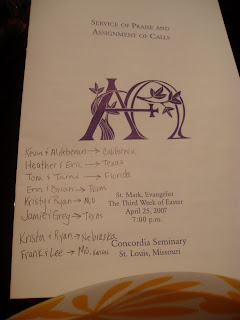 SERVICE OF PRAISE AND
ASSIGNMENT OF CALLS
Kevin & Aldebaran → California
Heather & Eric → Texas
Tom & Tammi → Florida
Erin & Brian → Texas
Kristy & Ryan → MO
Jamie & Greg → Texas
Krista & Ryan → Nebraska
Frank & Lee → MO. Kansas
St. Mark, Evangelist
The Third Week of Easter
April 25, 2007
7:00 p.m.
Concordia Seminary
St. Louis, Missouri